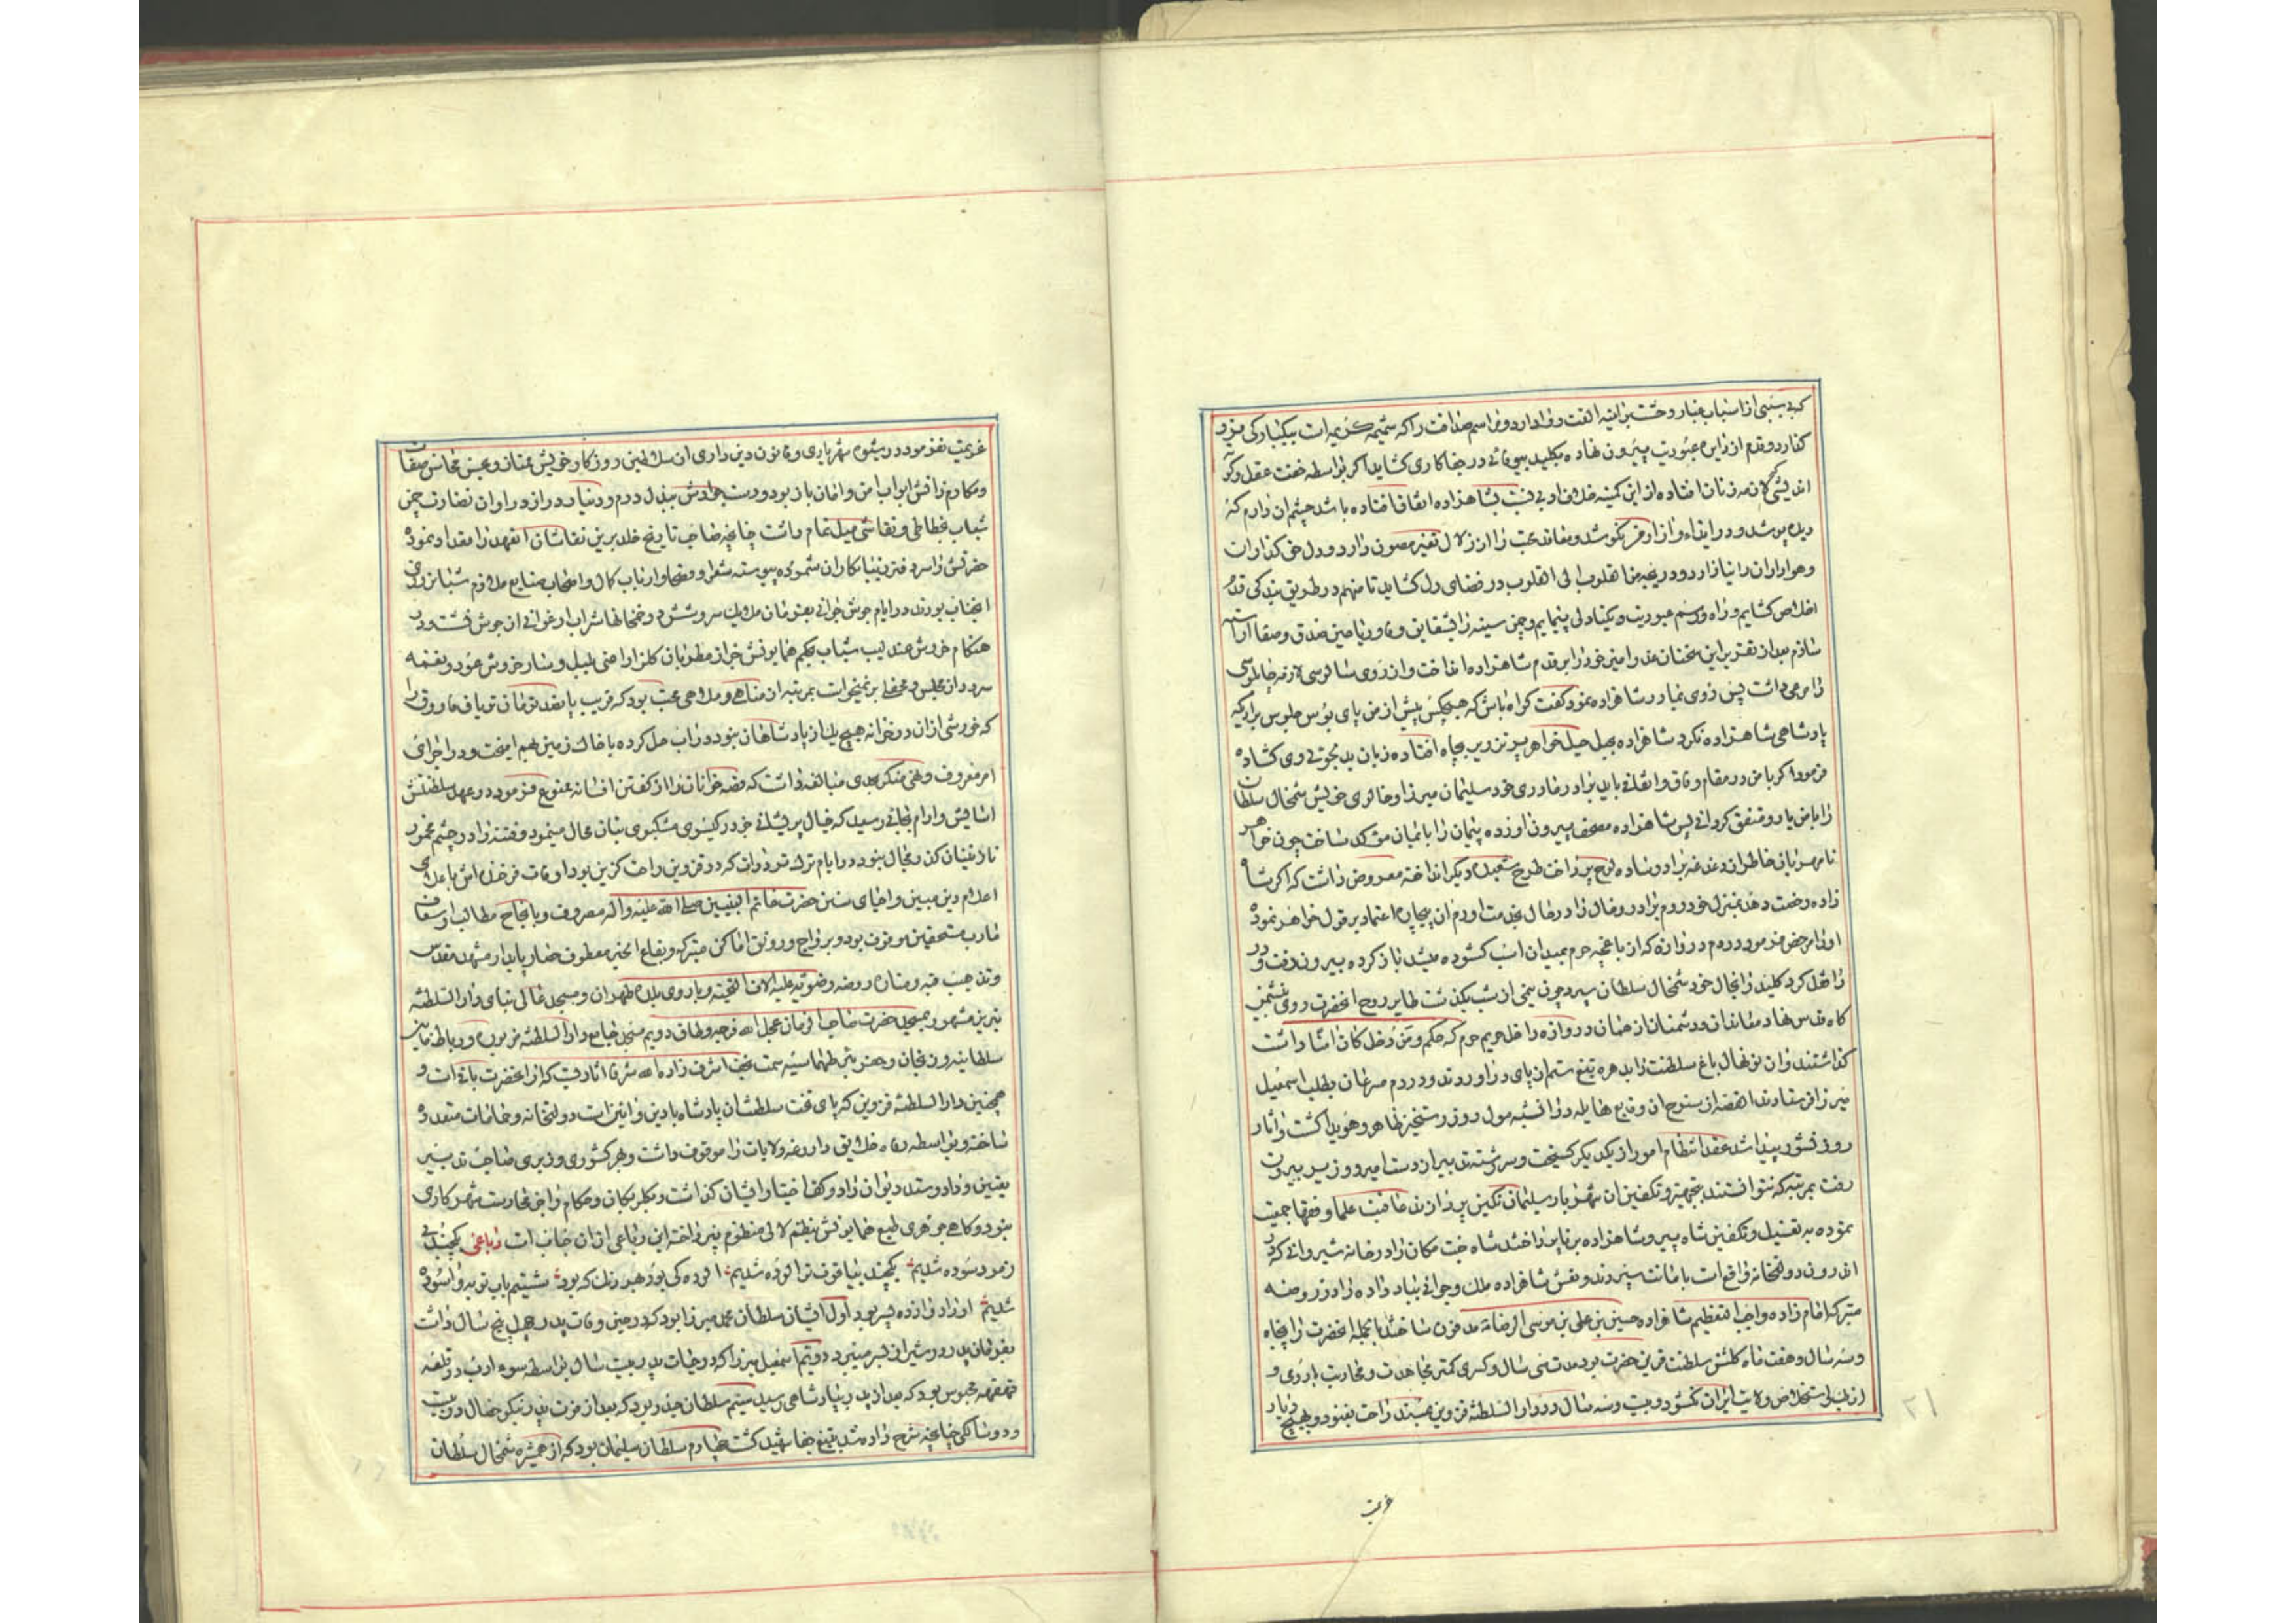 که بی سببی از اسباب غبار وحشت بر آینه الفت و وداد دارد و مراسم صداقت را که شیمه کریمه است بیکبارکی
کذارد و قدم از دایره عبودیت بیرون نهاده بکلید بیوفائی در جفاکاری کشاید اکر بواسطه خفت عقل و
اندیشی لازمه زنان افتاده از این کمینه خلافی نسبت بشاهزاده اتفاق افتاده باشد چشم ان دارم که
دیده پوشد و در ایذاء و ازار من نکوشد و عقاید محبت را از زلال تغیر مصون دارد و دل حق کذارات
و هواداران را نیازارد و دریچه من القلوب الی القلوب در فضای دل کشاید تا من هم در طریق بندکی قدم
اخلاص کشایم و راه و رسم عبودیت و یکتادلی پیمایم و چمن سینه را بشقایق وفا و ریاحین صدق و صفا اراسته
سازم بعد از تقریر این سخنان عذرامیز خود را بر قدم شاهزاده انداخت و از روی سالوسی لازمه چاپلوسی
را مرعی داشت پس روی نیاز در شاهزاده نمود کفت کواه باش که هیچکس پیش از من پای بوس جلوس بر اریکه
پادشاهی شاهزاده نکرد شاهزاده بحبل حیله خواهر پر تزویر بچاه افتاده زبان بدلجوئی وی کشاده
فرمود اکر با من در مقام وفاق و اتفاقی باید برادر مادری خود سلیمان میرزا و خالوی خویش شمخال سلطان
را با من یار و متفق کردانی پس شاهزاده مصحف بیرون اورده پیمان را بایمان موکد ساخت چون خواهر
نامهربان خاطر از دغدغه برادر ساده لوح پرداخت طرح شعبده دیکر انداخته معروض داشت که اکر شاه
زاده رخصت دهد بمنزل خود روم برادر و خال را در حال بخدمت اورم ان بیچاره اعتماد بر قول خواهر نموده
او را مرخص فرمود دردم دروازه که از باغچه حرم بمیدان اسب کشوده میشد باز کرده بیرون رفت و در
را قفل کرد کلید را بخال خود شمخال سلطان سپرد چون نیمی از شب بکذشت طایر روح انحضرت روی بنشیمن
کاه قدس نهاد معاندان و دشمنان از همان دروازه داخل حریم حرم که حکم و من دخله کان امنا داشت
کذاشتند و ان نونهال باغ سلطنت را بدهره تیغ ستم از پای در اوردند و در دم مرغان بطلب اسمعیل
میرزا فرستادند القصه از سنوح ان وقایع هایله در ان شب مول روز رستخیز ظاهر و هویدا کشت و اثار
روز نشور پیدا شد عقد انتظام امور از یکدیکر کسیخت و سر رشته تدبیر از دست امیر و وزیر بیرون
رفت بمرتبه که نتوانستند بتجهیز و تکفین ان شهریار سلیمان نکین پردازند عاقبت علما و فقها جمعیت
نموده به تغسیل و تکفین شاه پیر و شاهزاده برنا پرداختند شاه جنت مکان را در خانه شیروانی که در
اندرون دولتخانه واقع است بامانت سپردند و نعش شاهزاده ملک و جوانی بباد داده را در روضه
متبرکه امام زاده واجب التعظیم شاهزاده حسین بن علی بن موسی الرضا ع مدفون ساختند بالجمله انحضرت را پنجاه
و سه سال و هفت ماه کلشن سلطنت قرین حضرت بود مدت سی سال و کسری کمتر بمجاهدت و محاربت
از برای استخلاص ولایت ایران کمر بسته بود و بیست و سه سال در دار السلطنه قزوین مسند راحت بغنود و بهیچ دیار
۲۱
عزیمت
عزیمت نفرمود در رسوم شهریاری و قانون دین داری ان سلاطین روزکار خویش ممتاز و بحسن محاسن صفات
و مکارم ذاتش ابواب امن و امان باز بود و دست جوادش ببذل درم و دینار دراز در اوان نضارت چمن
شباب بخطاطی و نقاشی میل تمام داشت چنانچه صاحب تاریخ خلد برین نقاشان انعهد را مقدار نموده
حضرتش را سر دفتر زیبانکاران شموده پیوسته شعرا و فصحا و ارباب کمال و اصحاب صنایع ملازم شبانروزی
انجناب بودند در ایام جوش جوانی بعز فرمان ملایک سروشش در خمخانها شراب ارغوانی از جوش نشست و در
هنکام خروش عندلیب شباب بحکم همایونش جز از مطربان کلزار اعنی بلبل و سار خروش عود و نغمه
سرود از مجلس و محفلی برنمیخواست بمرتبه از مناهی و ملاهی مجتنب بود که قریب پانصد تومان تریاق فاروق را
که خورشی از ان در خزانه هیچ یک از پادشاهان نبود در آب حل کرده با خاک زمین بهم امیخت و در اجرای
امر معروف و نهی منکر بحدی مبالغه داشت که قصه خوانان را از کفتن افسانه ممنوع فرمود در عهد سلطنتش
اسایش و ارام بجائی رسید که خیال پریشانی جز در کیسوی مشکبوی بتان محال مینمود و فتنه را در چشم مخمور
نازنینان کذر و مجال نبود در ایام ترک تردد ات که در قزوین راحت کزین بود اوقات فرخنده اش باعلای
اعلام دین مبین و احیای سنن حضرت خاتم النبیین صلی الله علیه و اله مصروف و بانجاح مطالب و اسعاف
مارب مستحقین موقوف بود و برواج و رونق اماکن متبرکه و بقاع الخیر معطوف حصار پایدار مشهد مقدس
و تذهیب قبه و مناره روضه رضویه علیه الاف التحیته و باروی بلده طهران و مسجد عالی بنای دار السلطنه
تبریز مشهور بمسجد حضرت صاحب الزمان عجل الله فرجه و طاق دویم مسجد جامع دار السلطنه قزوین و رباط مابین
سلطانیه و زنجان و حصن شهر طهماسیه سمت نجف اشرف زاده الله شرفا اثاریست که از انحضرت باقیست و
همچنین دار السلطنه قزوین که پای تخت سلطنتشان پادشاه بادین و ائین است دولتخانه و حمامات متعدده
ساخته و بواسطه رفاه خلایق داروغه ولایات را موقوف داشت و بهر کشوری وزیری صاحب تدبیر
تعیین و داد و ستد دیوان را در کف اختیار ایشان کذاشت و بکلربیکان و حکام را جز محاربت شهر کاری
نبود و کاهی جوهری طبع همایونش بنظم لالی منظوم میپرداخته این رباعی از ان جناب است رباعی یکچند پی
زمرد سوده شدیم یکچند بیاقوت تر الوده شدیم الوده کی بود بهر رنک که بود شستیم باب توبه و اسوده
شدیم او را دوازده پسر بود اول ایشان سلطان محمد میرزا بود که در حین وفات پدر چهل پنج سال داشت
بفرمان پدر در شیراز بسر میبرد دویم اسمعیل میرزا که در حیات پدر بیست سال بواسطه سوء ادب در قلعه
قهقهه محبوس بود که بعد از پدر بپادشاهی رسید سیتم سلطان حیدر بود که بعد از فوت پدر نیکو خصال در بیست
و دو سالکی چنانچه شرح داده شد بتیغ جفا شهید کشت چهارم سلطان سلیمان بود که از همشیره شمخال سلطان